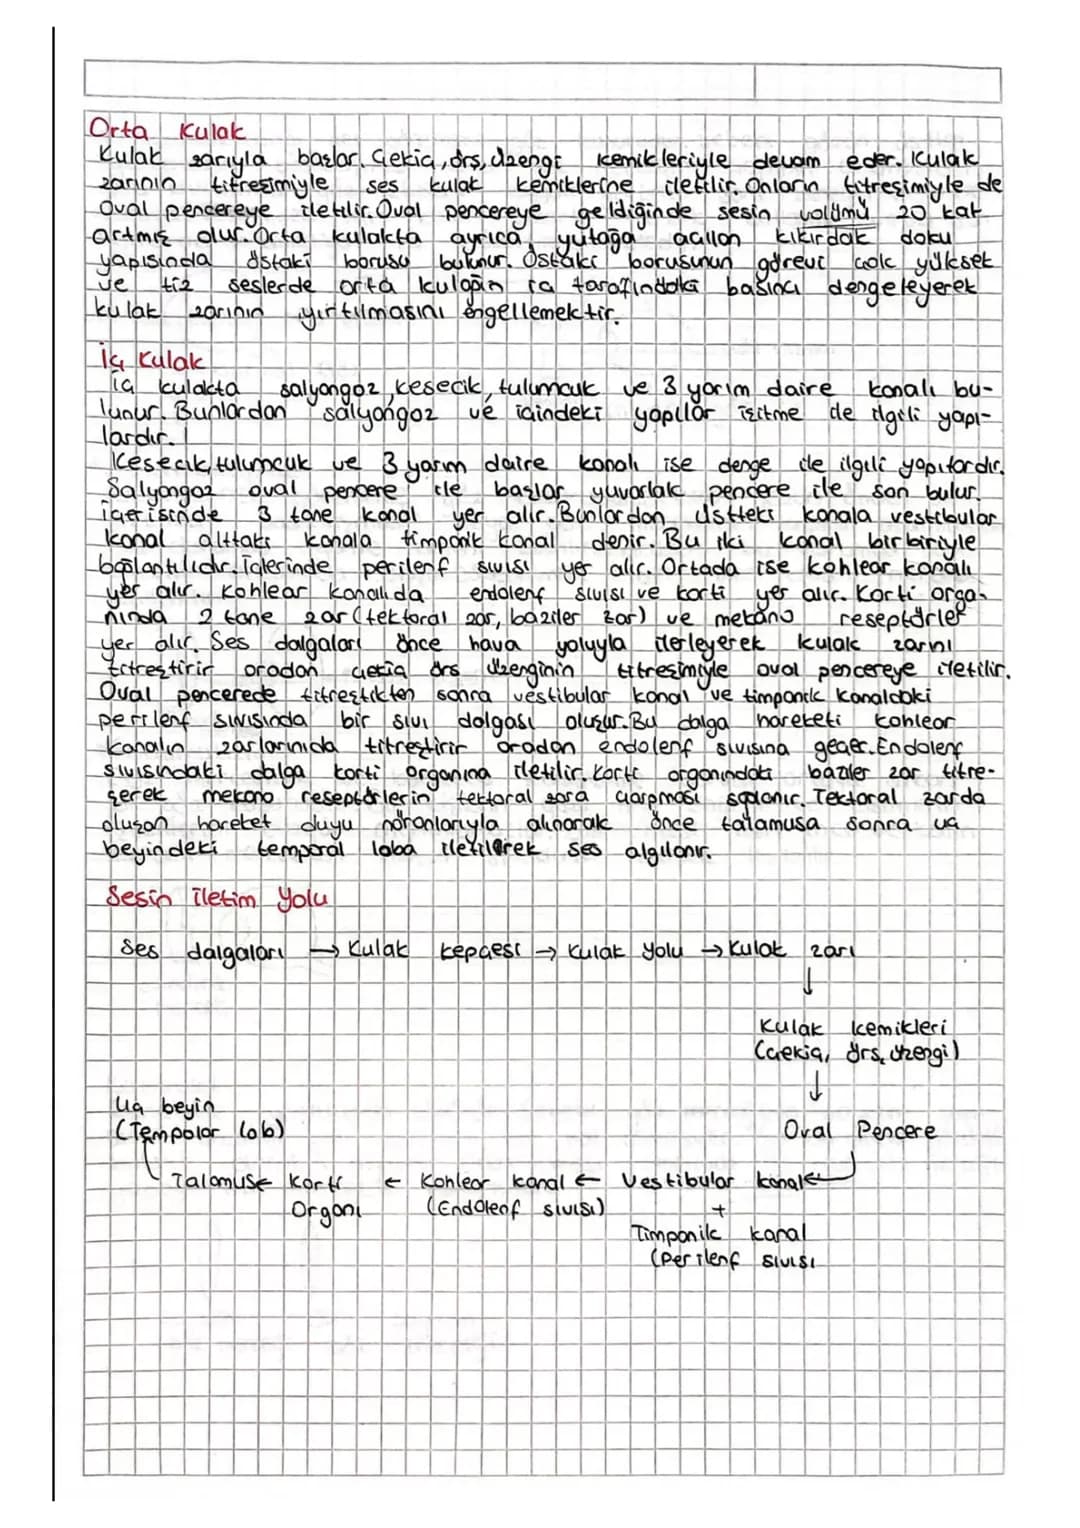 Orta Kulak
Kulak zarıyla başlar. Çekiç, örs, üzengi kemikleriyle devam eder. Kulak
zarının titreşimiyle ses kulak kemiklerine iletilir. Onların titreşimiyle de
Oval pencereye iletilir. Oval pencereye geldiğinde sesin volümü 20 kat
artmış olur. Orta kulakta ayrıca, yutağa açılan kıkırdak doku
yapısında östaki borusu bulunur. Östaki borusunun görevi çok yüksek
ve tiz seslerde orta kulağın iç tarafındaki basıncı dengeleyerek
kulak zarının yırtılmasını engellemektir.
İç Kulak
İç kulakta salyangoz, kesecik, tulumcuk ve 3 yarım daire kanalı bu-
lunur. Bunlardan salyangoz ve içindeki yapılar işitme ile ilgili yapı-
lardır.
Kesecik, tulumcuk ve 3 yarım daire kanalı ise denge ile ilgili yapılardır.
Salyangoz oval pencere ile başlar yuvarlak pencere ile son bulur.
içerisinde 3 tane kanal yer alır. Bunlardan üstteki kanala vestibular
kanal alttaki kanala timponik kanal denir. Bu iki kanal birbiriyle
bağlantılıdır. İçlerinde perilenf sıvısı yer alır. Ortada ise kohlear kanalı
yer alır. Kohlear kanalıda endolenf sıvısı ve korti yer alır. Korti orga-
nında 2 tane zar (tektoral zar, baziler zar) ve mekano reseptörler
yer alır. Ses dalgaları önce hava yoluyla ilerleyerek kulak zarnı
titreştirir oradan çekiç örs üzenginin titreşimiyle oval pencereye iletilir.
Oval pencerede titreştikten sonra vestibular kanal ve timponik kanaldaki
perilenf sıvısında bir sıvı dalgası oluşur. Bu dalga hareketi kohlear
kanalın zarlarınıda titreştirir oradan endolenf sıvısına geçer. Endolenf
sıvısındaki dalga korti organına iletilir. Korti organındaki baziler zar titre-
şerek mekano reseptörlerin tektoral zara çarpması sağlanır. Tektoral zarda
oluşan hareket duyu nöranlarıyla alınarak önce talamusa sonra uç
beyindeki temporal loba iletilerek ses algılanır.
Sesin İletim Yolu
Ses dalgaları → Kulak kepçesi → Kulak Yolu → Kulak zarı
↓
Kulak kemikleri
(Çekiç, örs, üzengi)
↓
Oval Pencere
Vestibular kanal ←
+
Timponik kanal
(Perilenf sıvısı
← Kohlear kanal ←
(Endolenf sıvısı)
Talamus ← Korti
Organı
Uç beyin
(Tempolar lob)